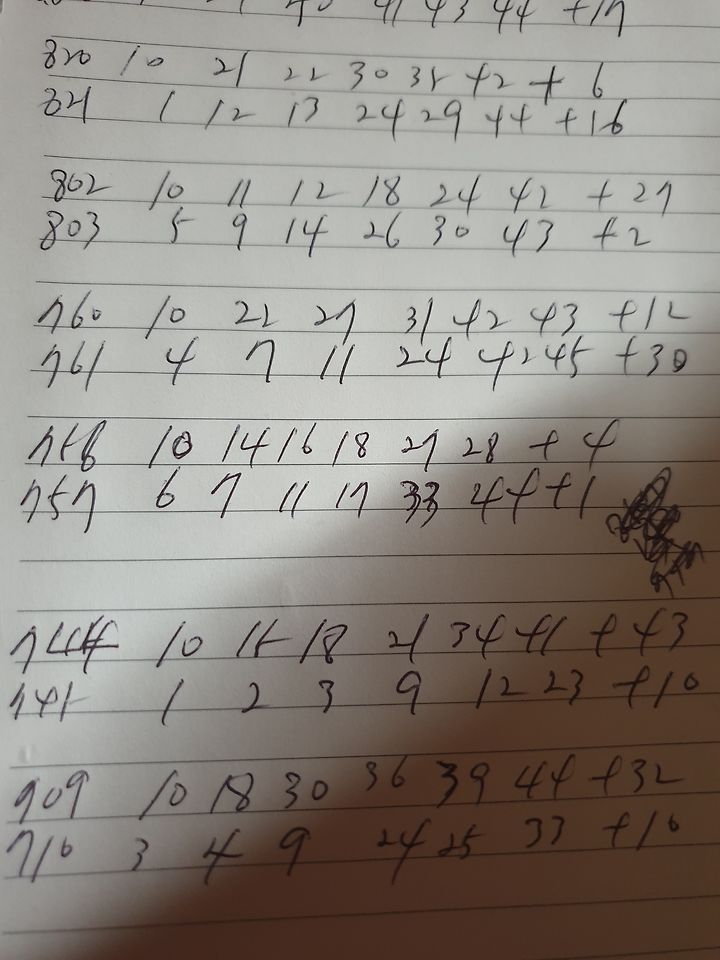 40 41 43 44 +17
820 10 21 22 30 35 42 + 6
821 1 12 13 24 29 44 +16
802 10 11 12 18 24 42 + 27
803 5 9 14 26 30 43 +2
760 10 22 27 31 42 43 +12
761 4 7 11 24 42 45 +30
756 10 14 16 18 27 28 + 4
757 6 7 11 17 33 44 +1
744 10 15 18 21 34 41 + 43
745 1 2 3 9 12 23 +10
909 10 18 30 36 39 44 +32
710 3 4 9 24 25 33 +10